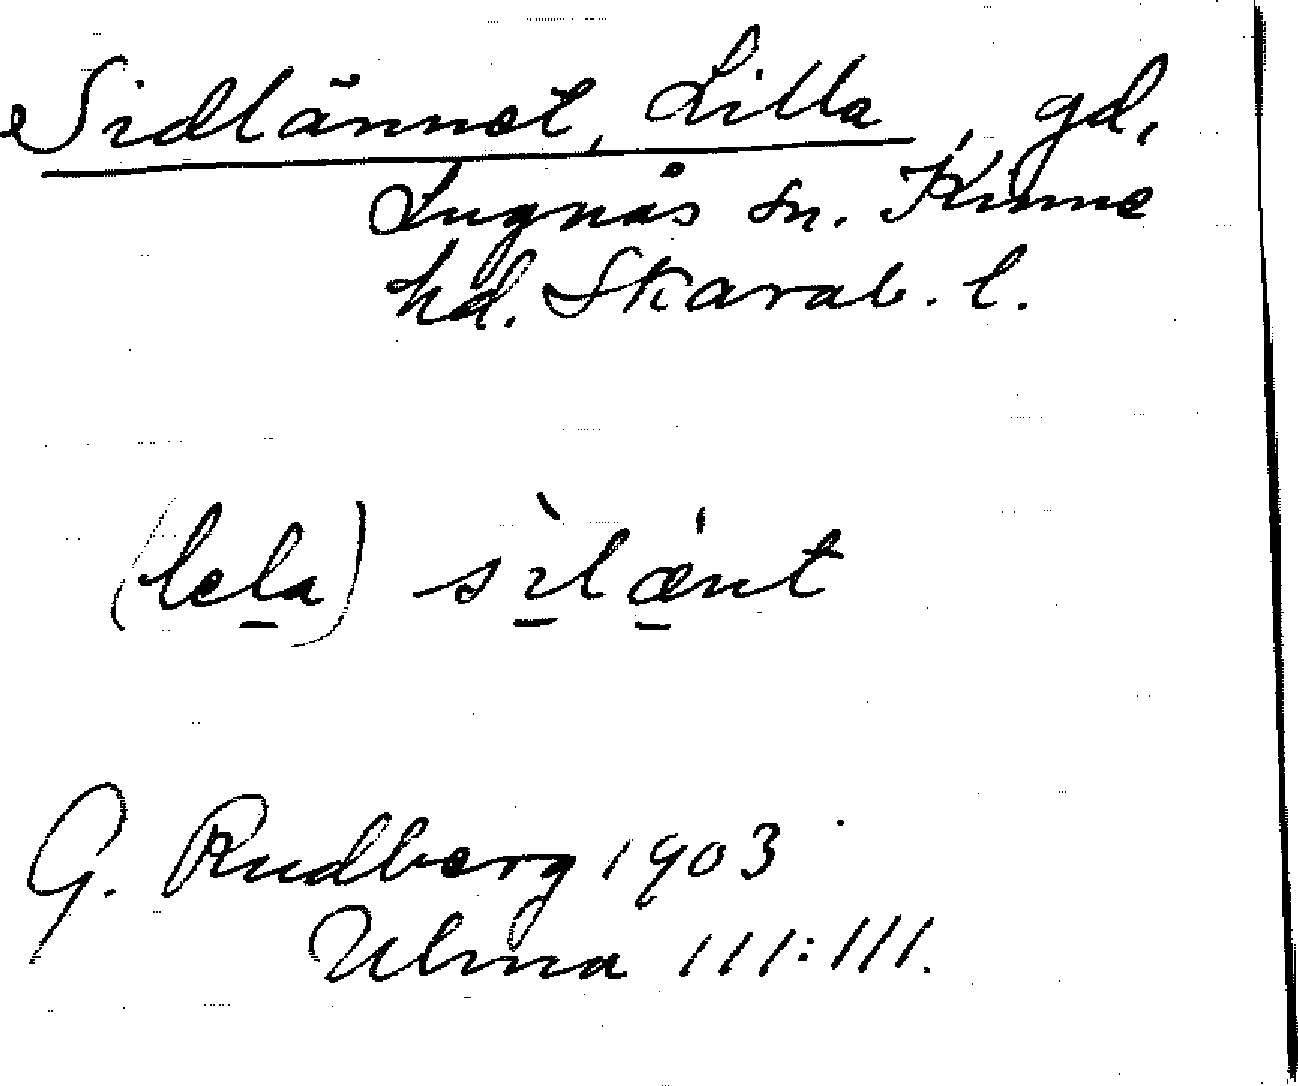 Sidlännet, Lilla, gd,
Lugnås sn. Kinne
hd. Skarab. l.
(lela) sìlǽnt
G. Rudberg 1903
Ulma 111:111.